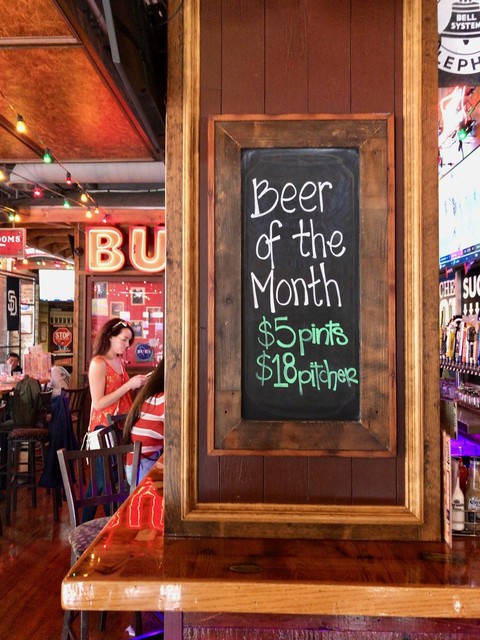 BELL
SYSTEM
Beer
of the
Month
$5 pints
$18 pitcher
BU
STOP